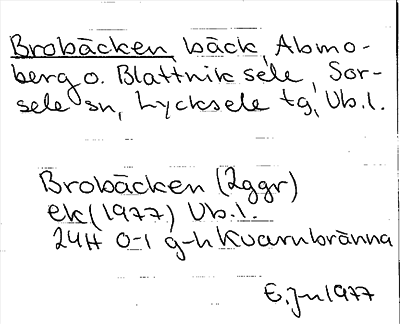 Brobäcken, bäck, Abmo-
berg o. Blattniksele, Sor-
sele sn, Lycksele tg, Vb.l.
Brobäcken (2ggr)
ek (1977) Vb.l.
24H 0-1 g-h Kvarnbränna
E. Jn 1977